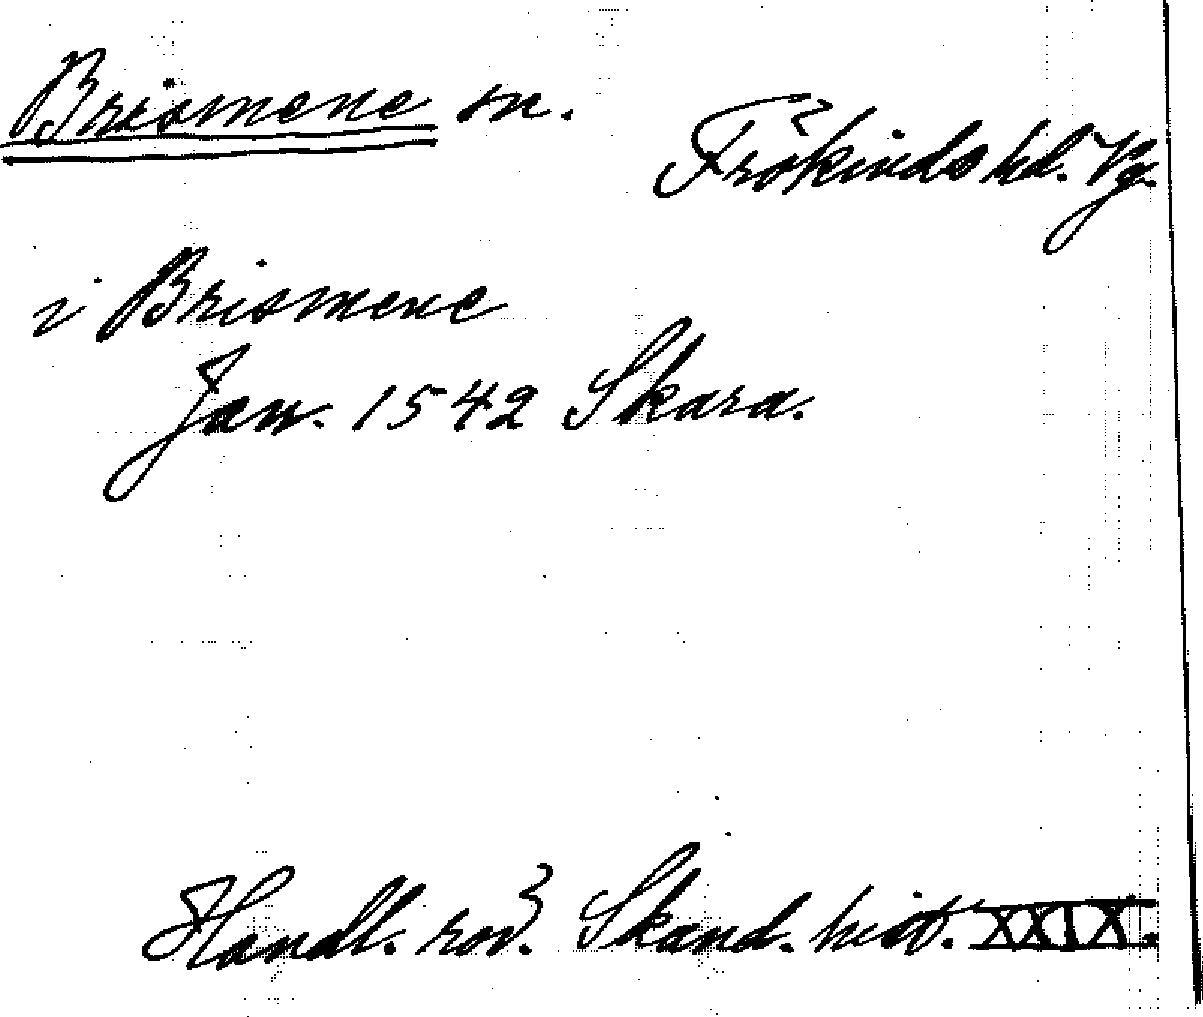 Brismene sn.
Frökinds hd. Vg.
i Brismene
Jan. 1542 Skara.
Handl. rör. Skand. hist. XXIX.